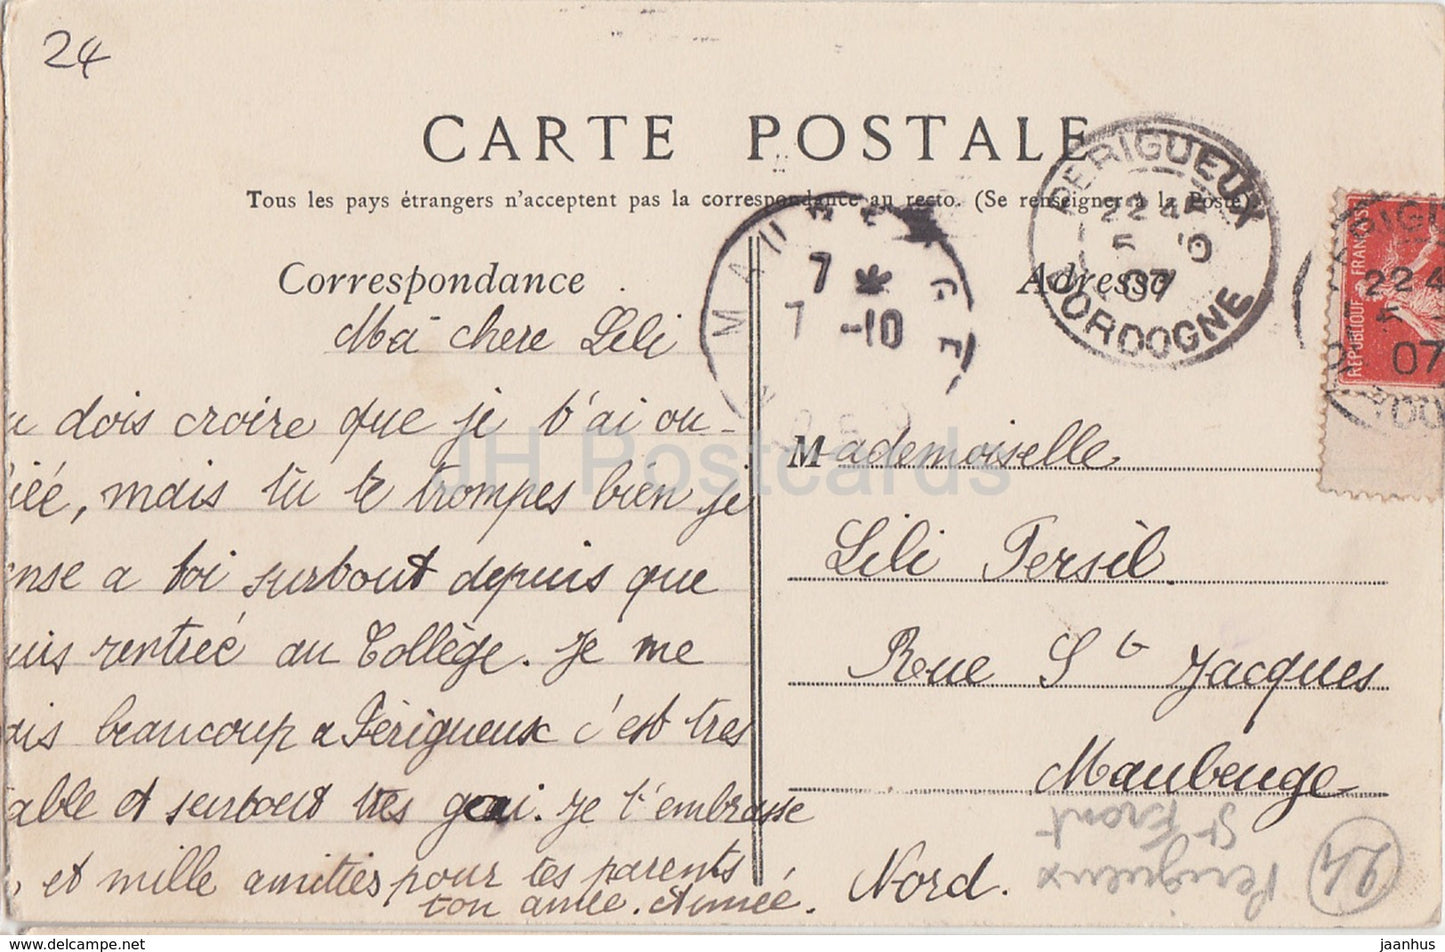 24
CARTE POSTALE
Tous les pays étrangers n'acceptent pas la correspondance au recto. (Se renseigner à la Poste).
PERIGUEUX
22 4
5 10
07
DORDOGNE
MAUBEUGE
7 *
7 -10
NORD
22 4
07
REPUBLIQUE FRANÇAISE
Correspondance
Ma chere Lili
dois croire que je t'ai ou-
iée, mais tu te trompes bien je
nse a toi surtout depuis que
uis rentrée au Collège. Je me
ais beaucoup a Périgueux c'est tres
able et surtout tres gai. Je t'embrasse
et mille amitiés pour tes parents
ton amie. Aimée.
Adresse
Mademoiselle
Lili Persil
Rue St Jacques
Maubeuge
Nord.
Perigueux
St Front
24
JH Postcards
jaanhus